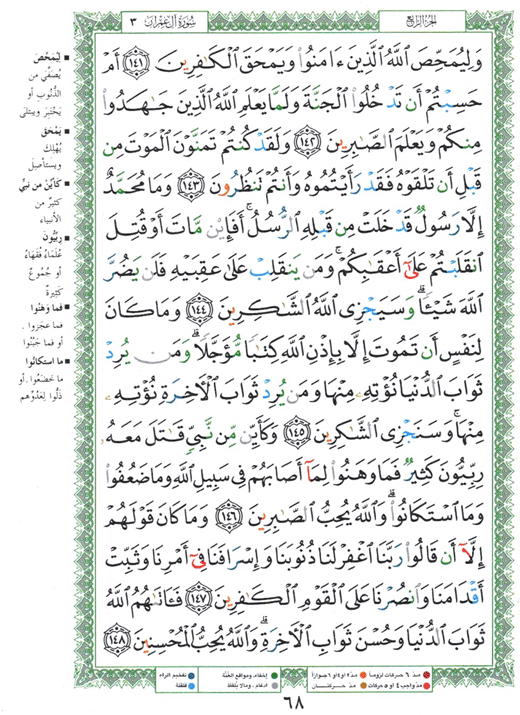 سُورَةُ آلِ عِمْرَانَ ٣
الجزء الرابع
وَلِيُمَحِّصَ ٱللَّهُ ٱلَّذِينَ ءَامَنُوا۟ وَيَمْحَقَ ٱلْكَـٰفِرِينَ ١٤١ أَمْ
حَسِبْتُمْ أَن تَدْخُلُوا۟ ٱلْجَنَّةَ وَلَمَّا يَعْلَمِ ٱللَّهُ ٱلَّذِينَ جَـٰهَدُوا۟
مِنكُمْ وَيَعْلَمَ ٱلصَّـٰبِرِينَ ١٤٢ وَلَقَدْ كُنتُمْ تَمَنَّوْنَ ٱلْمَوْتَ مِن
قَبْلِ أَن تَلْقَوْهُ فَقَدْ رَأَيْتُمُوهُ وَأَنتُمْ تَنظُرُونَ ١٤٣ وَمَا مُحَمَّدٌ
إِلَّا رَسُولٌ قَدْ خَلَتْ مِن قَبْلِهِ ٱلرُّسُلُ ۚ أَفَإِي۟ن مَّاتَ أَوْ قُتِلَ
ٱنقَلَبْتُمْ عَلَىٰٓ أَعْقَـٰبِكُمْ ۚ وَمَن يَنقَلِبْ عَلَىٰ عَقِبَيْهِ فَلَن يَضُرَّ
ٱللَّهَ شَيْـًٔا ۗ وَسَيَجْزِى ٱللَّهُ ٱلشَّـٰكِرِينَ ١٤٤ وَمَا كَانَ
لِنَفْسٍ أَن تَمُوتَ إِلَّا بِإِذْنِ ٱللَّهِ كِتَـٰبًا مُّؤَجَّلًا ۗ وَمَن يُرِدْ
ثَوَابَ ٱلدُّنْيَا نُؤْتِهِۦ مِنْهَا وَمَن يُرِدْ ثَوَابَ ٱلْـَٔاخِرَةِ نُؤْتِهِۦ
مِنْهَا ۚ وَسَنَجْزِى ٱلشَّـٰكِرِينَ ١٤٥ وَكَأَيِّن مِّن نَّبِىٍّ قَـٰتَلَ مَعَهُۥ
رِبِّيُّونَ كَثِيرٌ فَمَا وَهَنُوا۟ لِمَآ أَصَابَهُمْ فِى سَبِيلِ ٱللَّهِ وَمَا ضَعُفُوا۟
وَمَا ٱسْتَكَانُوا۟ ۗ وَٱللَّهُ يُحِبُّ ٱلصَّـٰبِرِينَ ١٤٦ وَمَا كَانَ قَوْلَهُمْ
إِلَّآ أَن قَالُوا۟ رَبَّنَا ٱغْفِرْ لَنَا ذُنُوبَنَا وَإِسْرَافَنَا فِىٓ أَمْرِنَا وَثَبِّتْ
أَقْدَامَنَا وَٱنصُرْنَا عَلَى ٱلْقَوْمِ ٱلْكَـٰفِرِينَ ١٤٧ فَـَٔاتَىٰهُمُ ٱللَّهُ
ثَوَابَ ٱلدُّنْيَا وَحُسْنَ ثَوَابِ ٱلْـَٔاخِرَةِ ۗ وَٱللَّهُ يُحِبُّ ٱلْمُحْسِنِينَ ١٤٨
لِيُمَحِّصَ
يُصَفِّيَ من
الذُّنُوبِ أو
يَخْتَبِرَ ويبتلي
يَمْحَقَ
يُهْلِكَ
ويستأصِلَ
كَأَيِّن من نبيٍّ
كثيرٌ من
الأنبياء
رِبِّيُّونَ
عُلَمَاءُ فُقَهَاءُ
أو جُموعٌ
كَثِيرَةٌ
فما وَهَنُوا
فما عَجَزوا .
أو فما جَبُنُوا
ما استكانوا
ما خضَعُوا . أو
ذَلُّوا لِعَدُوِّهم
مدّ ٦ حركات لزوماً
مدّ ٢ أو ٤ أو ٦ جوازاً
إخفاء، ومواقع الغُنَّة
تفخيم الراء
مدّ واجب ٤ أو ٥ حركات
مدّ حركتان
ادغام، وما لا يلفظ
قلقلة
٦٨